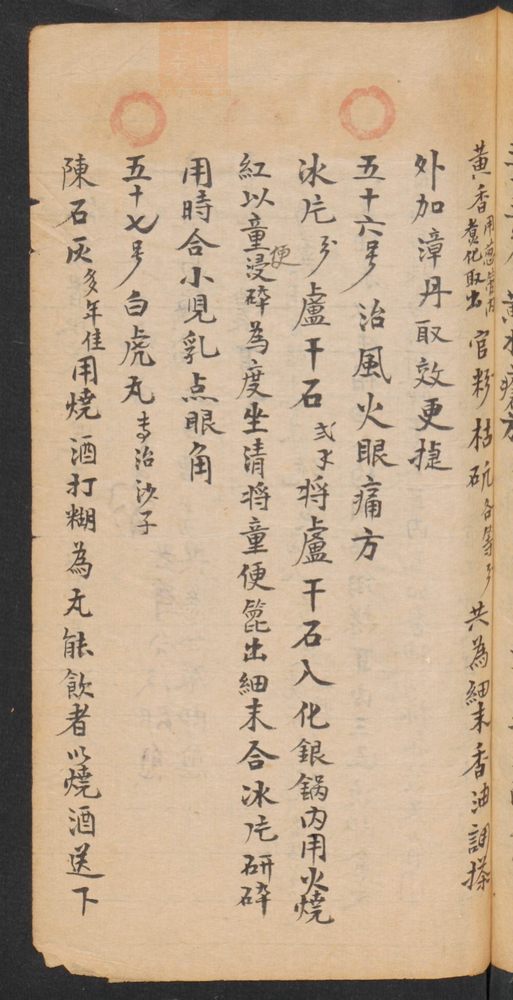 黄香用葱管内煮化取出官粉枯矾各等分共為細末香油調搽
外加漳丹取效更捷
五十六号治風火眼痛方
冰片分盧干石弍 将盧干石入化銀锅内用火燒
紅以童便浸碎為度坐清将童便篦出細末合冰片研碎
用時合小児乳点眼角
五十七号白虎丸専治沙子
陳石灰多年佳用燒酒打糊為丸能飲者以燒酒送下